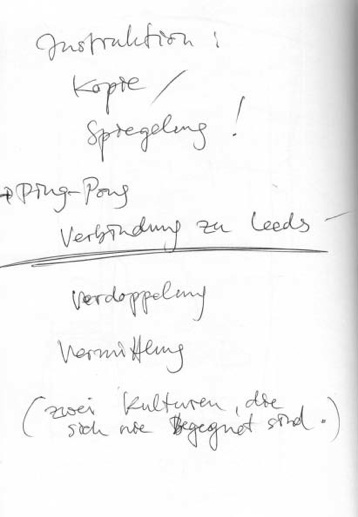 Instruktion:
Kopie /
Spiegelung!
→ Ping-Pong
Verbindung zu Leeds –
Verdoppelung
Vermittlung
(zwei Kulturen, die
sich nie Begegnet sind.)